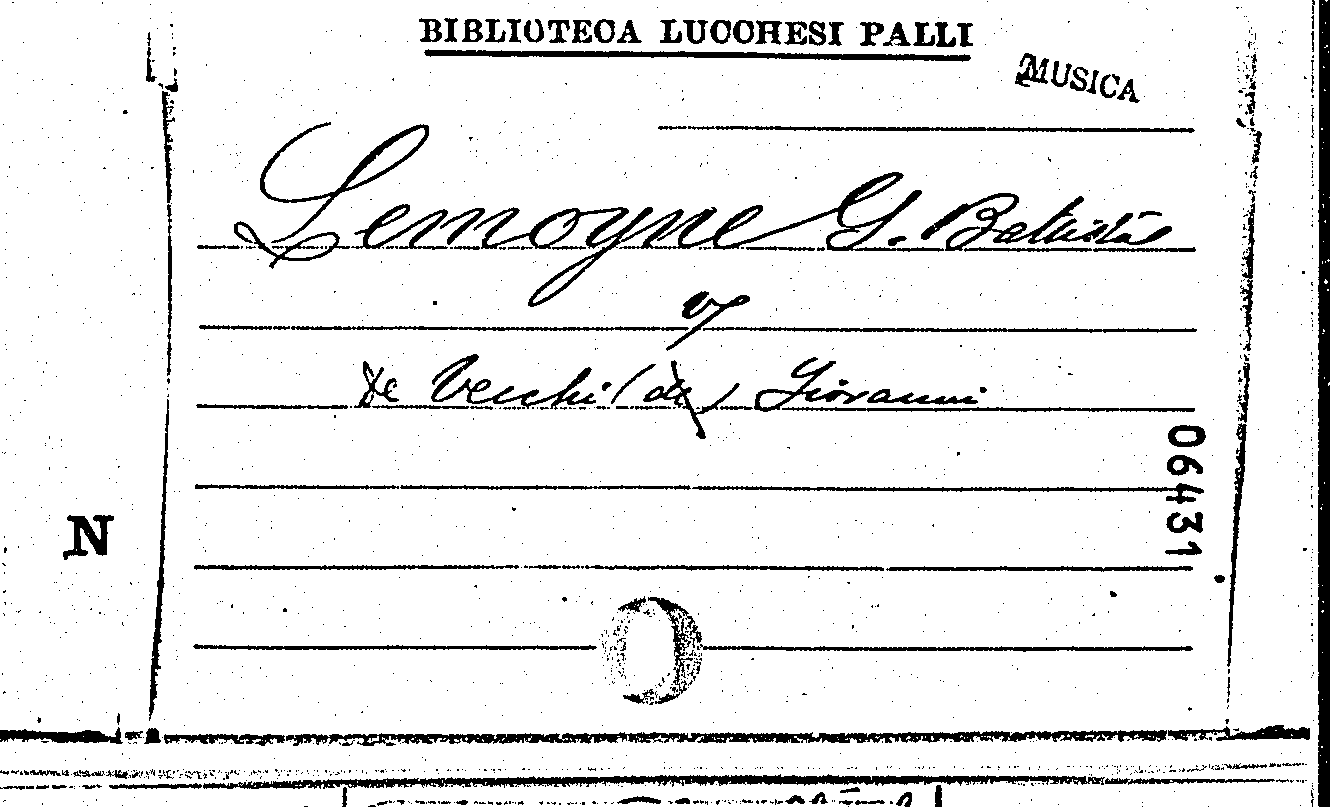 BIBLIOTECA LUCCHESI PALLI
MUSICA
Lemoyne G. Battista
v
De Vecchi (de) Giovanni
06431
N